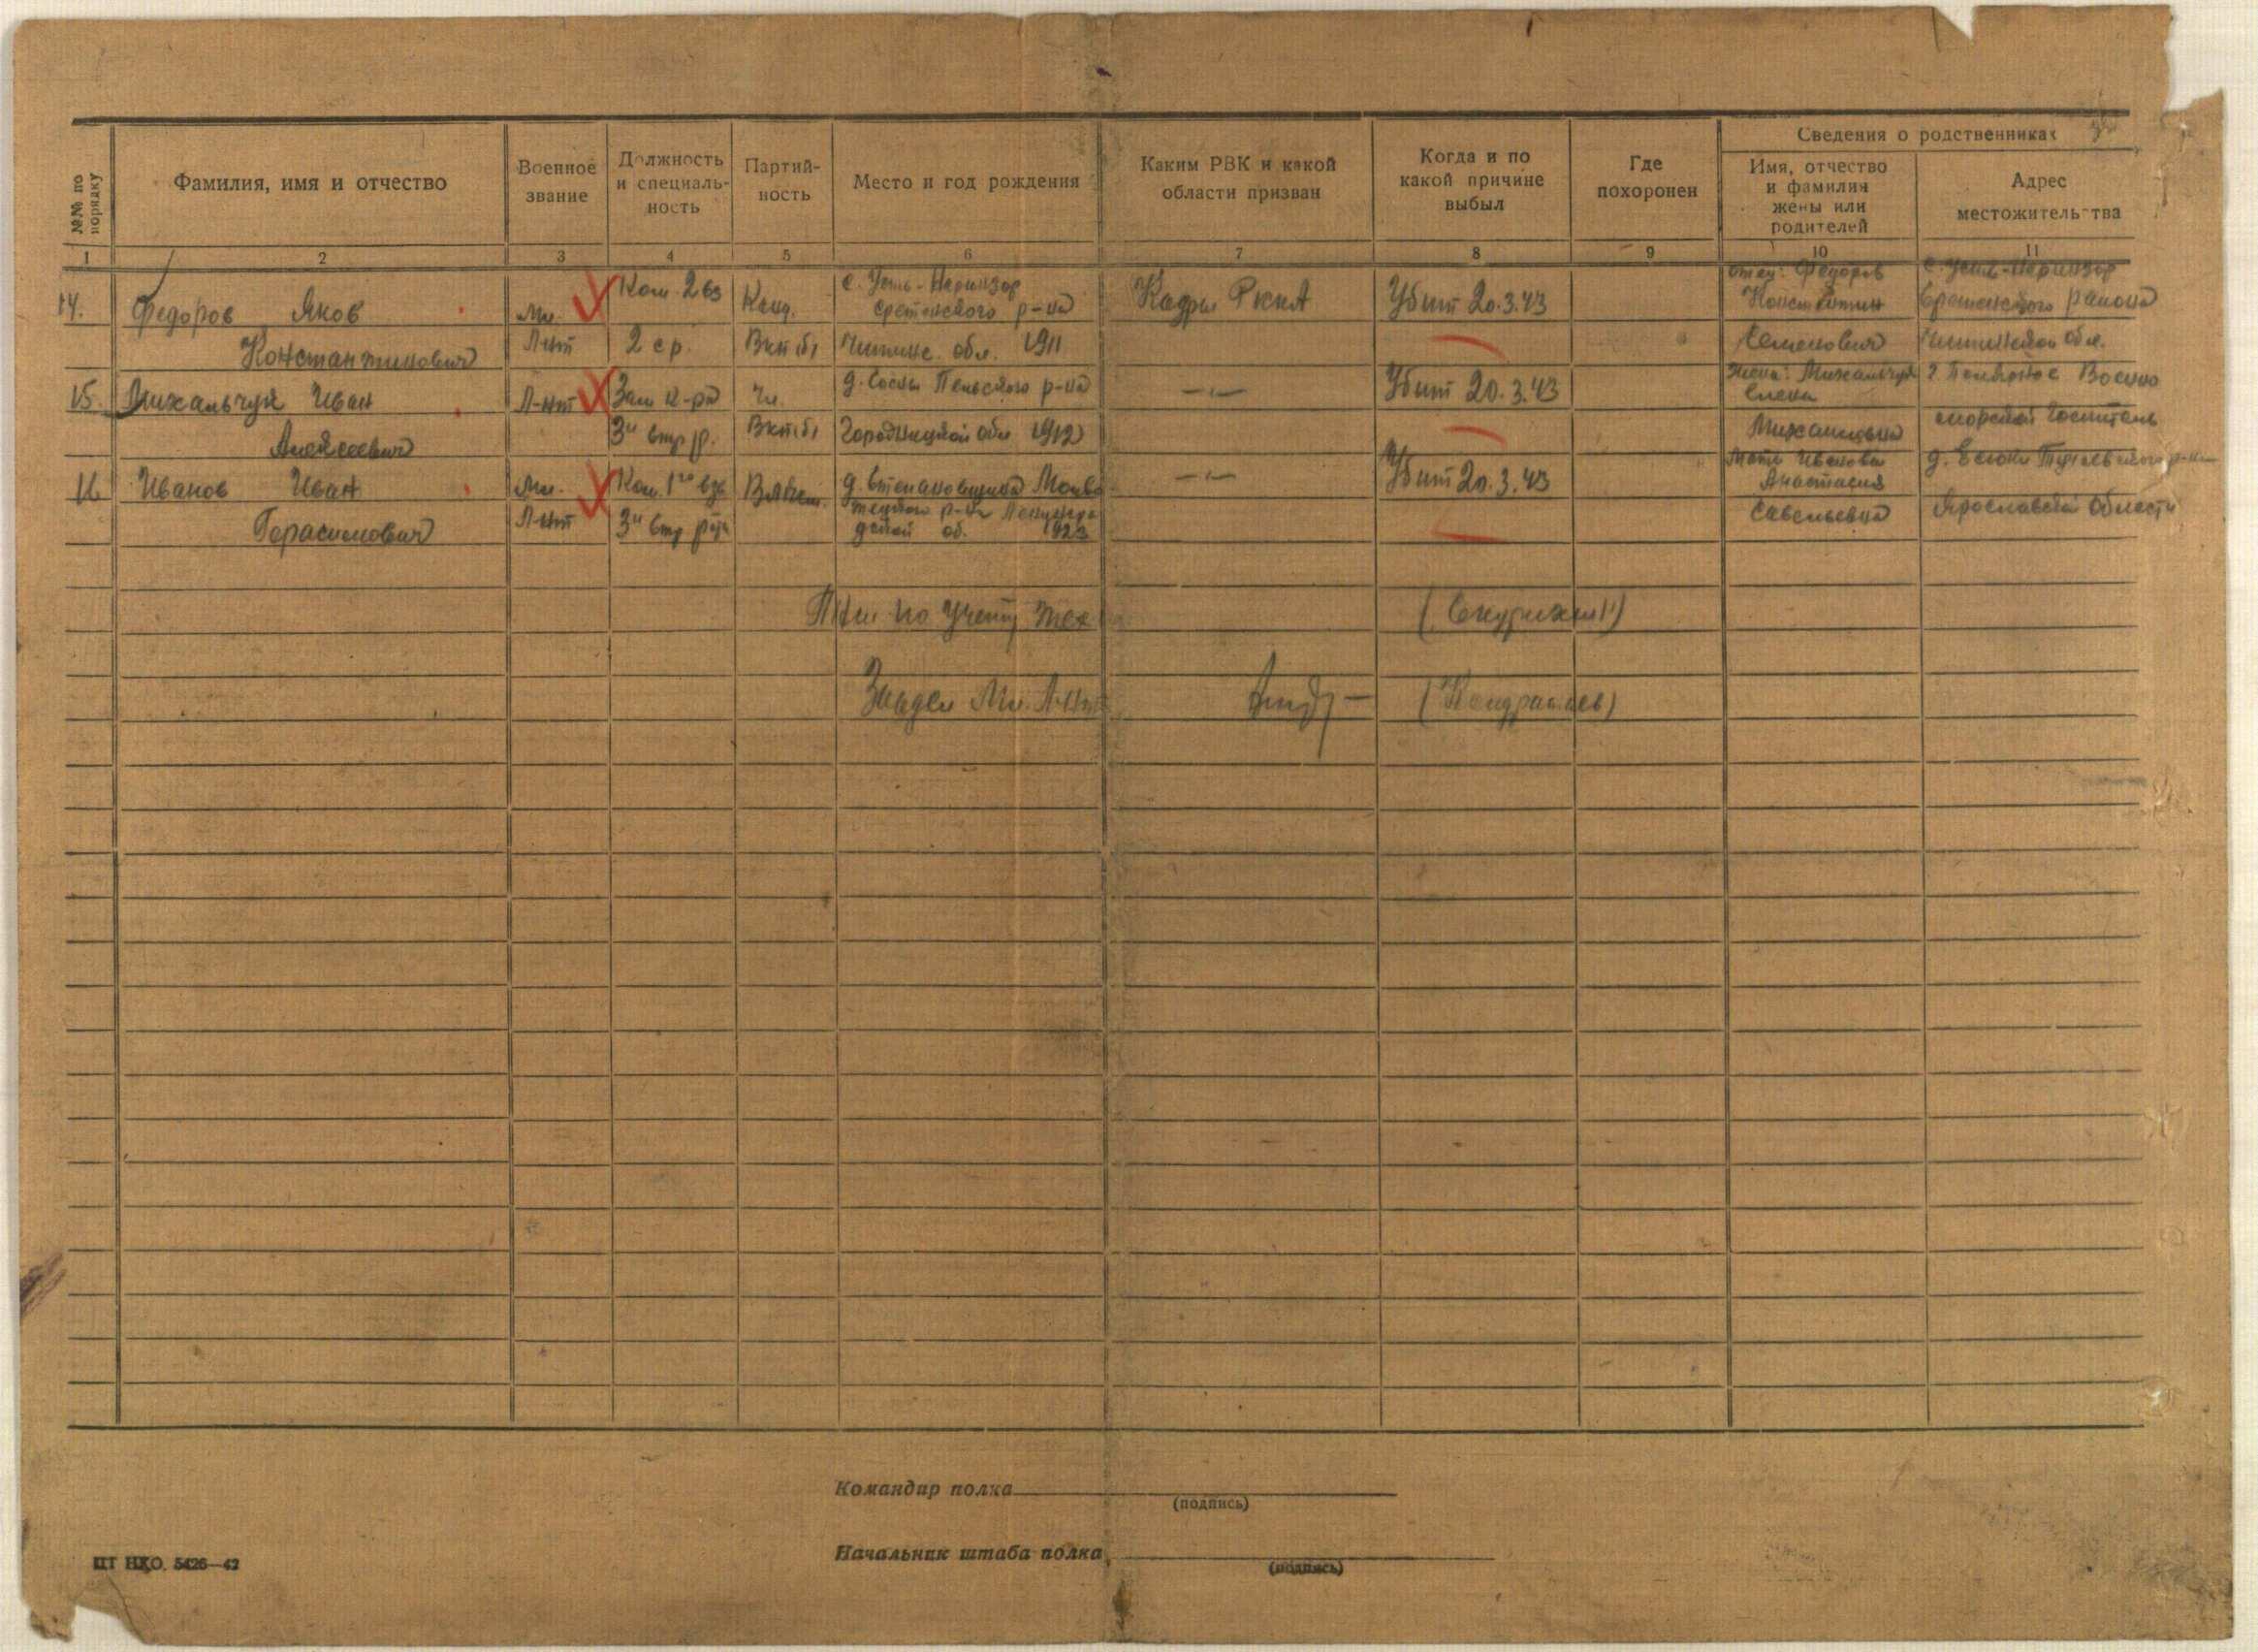 №№ по порядку
Фамилия, имя и отчество
Военное звание
Должность и специаль-ность
Партий-ность
Место и год рождения
Каким РВК и какой области призван
Когда и по какой причине выбыл
Где похоронен
Сведения о родственниках
Имя, отчество и фамилия жены или родителей
Адрес местожительства
1 2 3 4 5 6 7 8 9 10 11
14. Федоров Яков Мл. Ком 2 вз Канд. с. Усть- Сретенского р-на Кадры РККА Убит 20.3.43 отец: Федоров Константин Сретенского района
Константинович Л-нт 2 ср. ВКП(б) Читинс. обл. 1911 Семенович Читинской обл.
15. Михальчук Иван Л-нт Зам к-ра Чл. д. Сосны р-на —〃— Убит 20.3.43 Жена: Михальчук Елена г. Полярное Военно
Алексеевич 3й стр р. ВКП(б) обл 1912 Михайловна морской госпиталь
16 Иванов Иван Мл. Ком. 1го взв Влксм. д. —〃— Убит 20.3.43 Мать Иванова Анастасия д. р-на
Герасимович Л-нт 3й стр рты р-на об. 1923 Савельевна Ярославской области
ПНШ по учету
Завдел Мл. Л-нт
Командир полка
(подпись)
Начальник штаба полка
(подпись)
ЦТ НКО. 5426—42